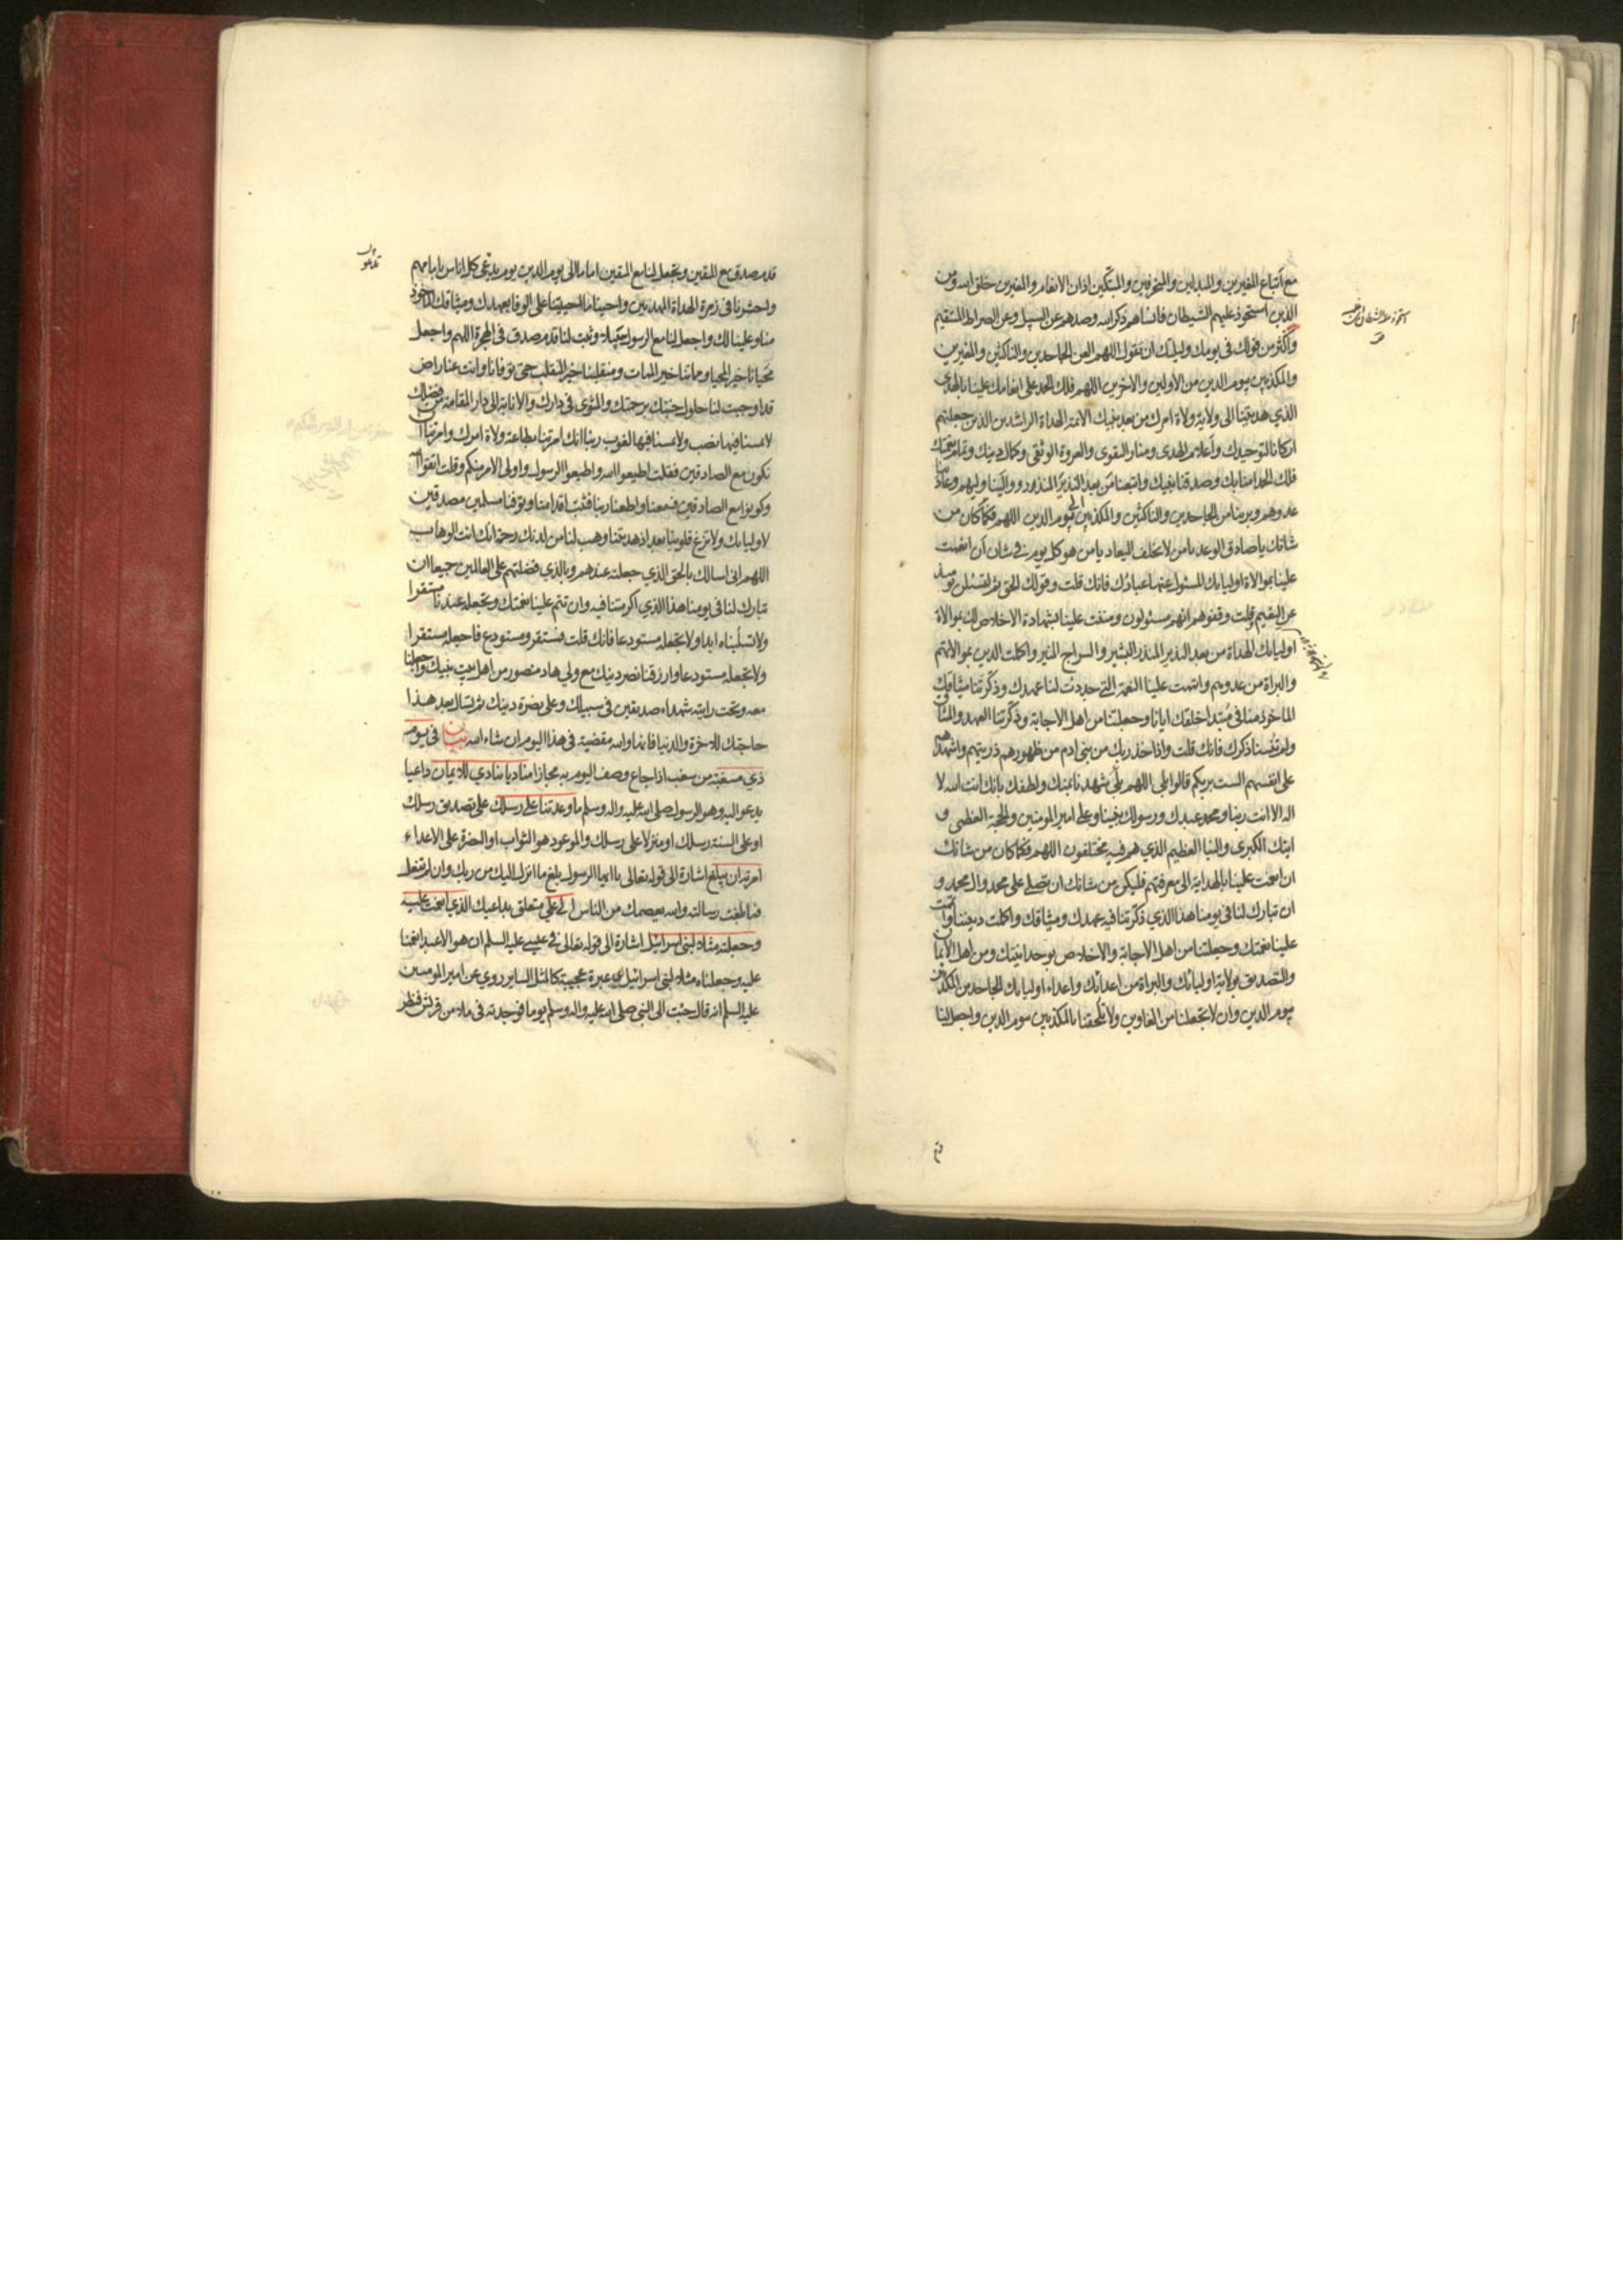 مع اتباع المغيرين والمبدلين والمنحرفين والمبتكين اذان الانعام والمغيرين خلق الله ومن
الذين استحوذ عليهم الشيطان فانساهم ذكر الله وصدهم عن السبيل وعن الصراط المستقيم
واكثر من قولك في يومك وليلتك ان تقول اللهم العن الجاحدين والناكثين والمغيرين
والمكذبين بيوم الدين من الاولين والاخرين اللهم فلك الحمد على انعامك علينا بالهدى
الذي هديتنا الى ولاية ولاة امرك من بعد نبيك الائمة الهداة الراشدين الذين جعلتهم
اركانا لتوحيدك واعلام الهدى ومنار التقوى والعروة الوثقى وكمال دينك وتمام نعمتك
فلك الحمد امنا بك وصدقنا نبيك واتبعنا من بعد النذير المنذر ووالينا وليهم وعادينا
عدوهم وبرينا من الجاحدين والناكثين والمكذبين الى يوم الدين اللهم فكما كان من
شانك يا صادق الوعد يا من لا يخلف الميعاد يا من هو كل يوم في شان ان انعمت
علينا بموالاة اوليائك المسئول عنها عبادك فانك قلت وقولك الحق ثم لتسئلن يومئذ
عن النعيم وقلت وقفوهم انهم مسئولون ومننت علينا بشهادة الاخلاص لك بموالاة
اوليائك الهداة من بعد النذير المنذر البشير والسراج المنير واكملت الدين بموالاتهم
والبراة من عدوهم واتممت علينا النعمة التي جددت لنا عهدك وذكرتنا ميثاقك
الماخوذ منا في مبتدا خلقك ايانا وجعلتنا من اهل الاجابة وذكرتنا العهد والميثاق
ولم تنسنا ذكرك فانك قلت واذ اخذ ربك من بني ادم من ظهورهم ذريتهم واشهدهم
على انفسهم الست بربكم قالوا بلى اللهم بلى شهدنا بمنك ولطفك بانك انت الله لا
اله الا انت ربنا ومحمد عبدك ورسولك نبينا وعلي امير المومنين والحجة العظمى و
ايتك الكبرى والنبا العظيم الذي هم فيه مختلفون اللهم فكما كان من شانك
ان انعمت علينا بالهداية الى معرفتهم فليكن من شانك ان تصلي على محمد وال محمد و
ان تبارك لنا في يومنا هذا الذي ذكرتنا فيه عهدك وميثاقك واكملت ديننا واتممت
علينا نعمتك وجعلتنا من اهل الاجابة والاخلاص بوحدانيتك ومن اهل الايمان
والتصديق بولاية اوليائك والبراة من اعدائك واعداء اوليائك الجاحدين المكذبين
بيوم الدين وان لا تجعلنا من الغاوين ولا تلحقنا بالمكذبين بيوم الدين واجعل لنا
قدم صدق مع المتقين وتجعل لنا مع المتقين اماما الى يوم الدين يوم يدعى كل اناس بامامهم
واحشرنا في زمرة الهداة المهديين واحينا ما احييتنا على الوفا بعهدك وميثاقك الماخوذ
منا وعلينا لك واجعل لنا مع الرسول سبيلا وثبت لنا قدم صدق في الهجرة اللهم واجعل
محيانا خير المحيا ومماتنا خير الممات ومنقلبنا خير المنقلب حتى توفانا وانت عنا راض
قد اوجبت لنا حلول جنتك برحمتك والمثوى في دارك والانابة الى دار المقامة من فضلك
لا يمسنا فيها نصب ولا يمسنا فيها لغوب ربنا انك امرتنا بطاعة ولاة امرك وامرتنا ان
نكون مع الصادقين فقلت اطيعوا الله واطيعوا الرسول واولى الامر منكم وقلت اتقوا الله
وكونوا مع الصادقين فسمعنا واطعنا ربنا فثبت اقدامنا وتوفنا مسلمين مصدقين
لاوليائك ولا تزغ قلوبنا بعد اذ هديتنا وهب لنا من لدنك رحمة انك انت الوهاب
اللهم اني اسالك بالحق الذي جعلته عندهم وبالذي فضلتهم على العالمين جميعا ان
تبارك لنا في يومنا هذا الذي اكرمتنا فيه وان تتم علينا نعمتك وتجعله عندنا مستقرا
ولا تسلبناه ابدا ولا تجعله مستودعا فانك قلت فمستقر ومستودع فاجعله مستقرا
ولا تجعله مستودعا وارزقنا نصر دينك مع ولي هاد منصور من اهل بيت نبيك واجعلنا
معه وتحت رايته شهداء صديقين في سبيلك وعلى نصرة دينك ثم تسال بعد هذا
حاجتك للاخرة والدنيا فانها والله مقضية في هذا اليوم ان شاء الله بيان في يوم
ذي مسغبة من سغب اذا جاع وصف اليوم به مجازا مناديا ينادي للايمان داعيا
يدعو اليه وهو الرسول صلى الله عليه واله وسلم ما وعدتنا على رسلك على تصديق رسلك
او على السنة رسلك او منزلا على رسلك والموعود هو الثواب او النصرة على الاعداء
امرته ان يبلغ اشارة الى قوله تعالى يا ايها الرسول بلغ ما انزل اليك من ربك وان لم تفعل
فما بلغت رسالته والله يعصمك من الناس الى علي متعلق بداعيك الذي انعمت عليه
وجعلته مثلا لبني اسرائيل اشارة الى قوله تعالى في عيسى عليه السلم ان هو الا عبد انعمنا
عليه وجعلناه مثلا لبني اسرائيل اي عبرة عجيبة كالمثل الساير روي عن امير المومنين
عليه السلم انه قال جئت الى النبي صلى الله عليه واله وسلم يوما فوجدته في ملاء من قريش فنظر